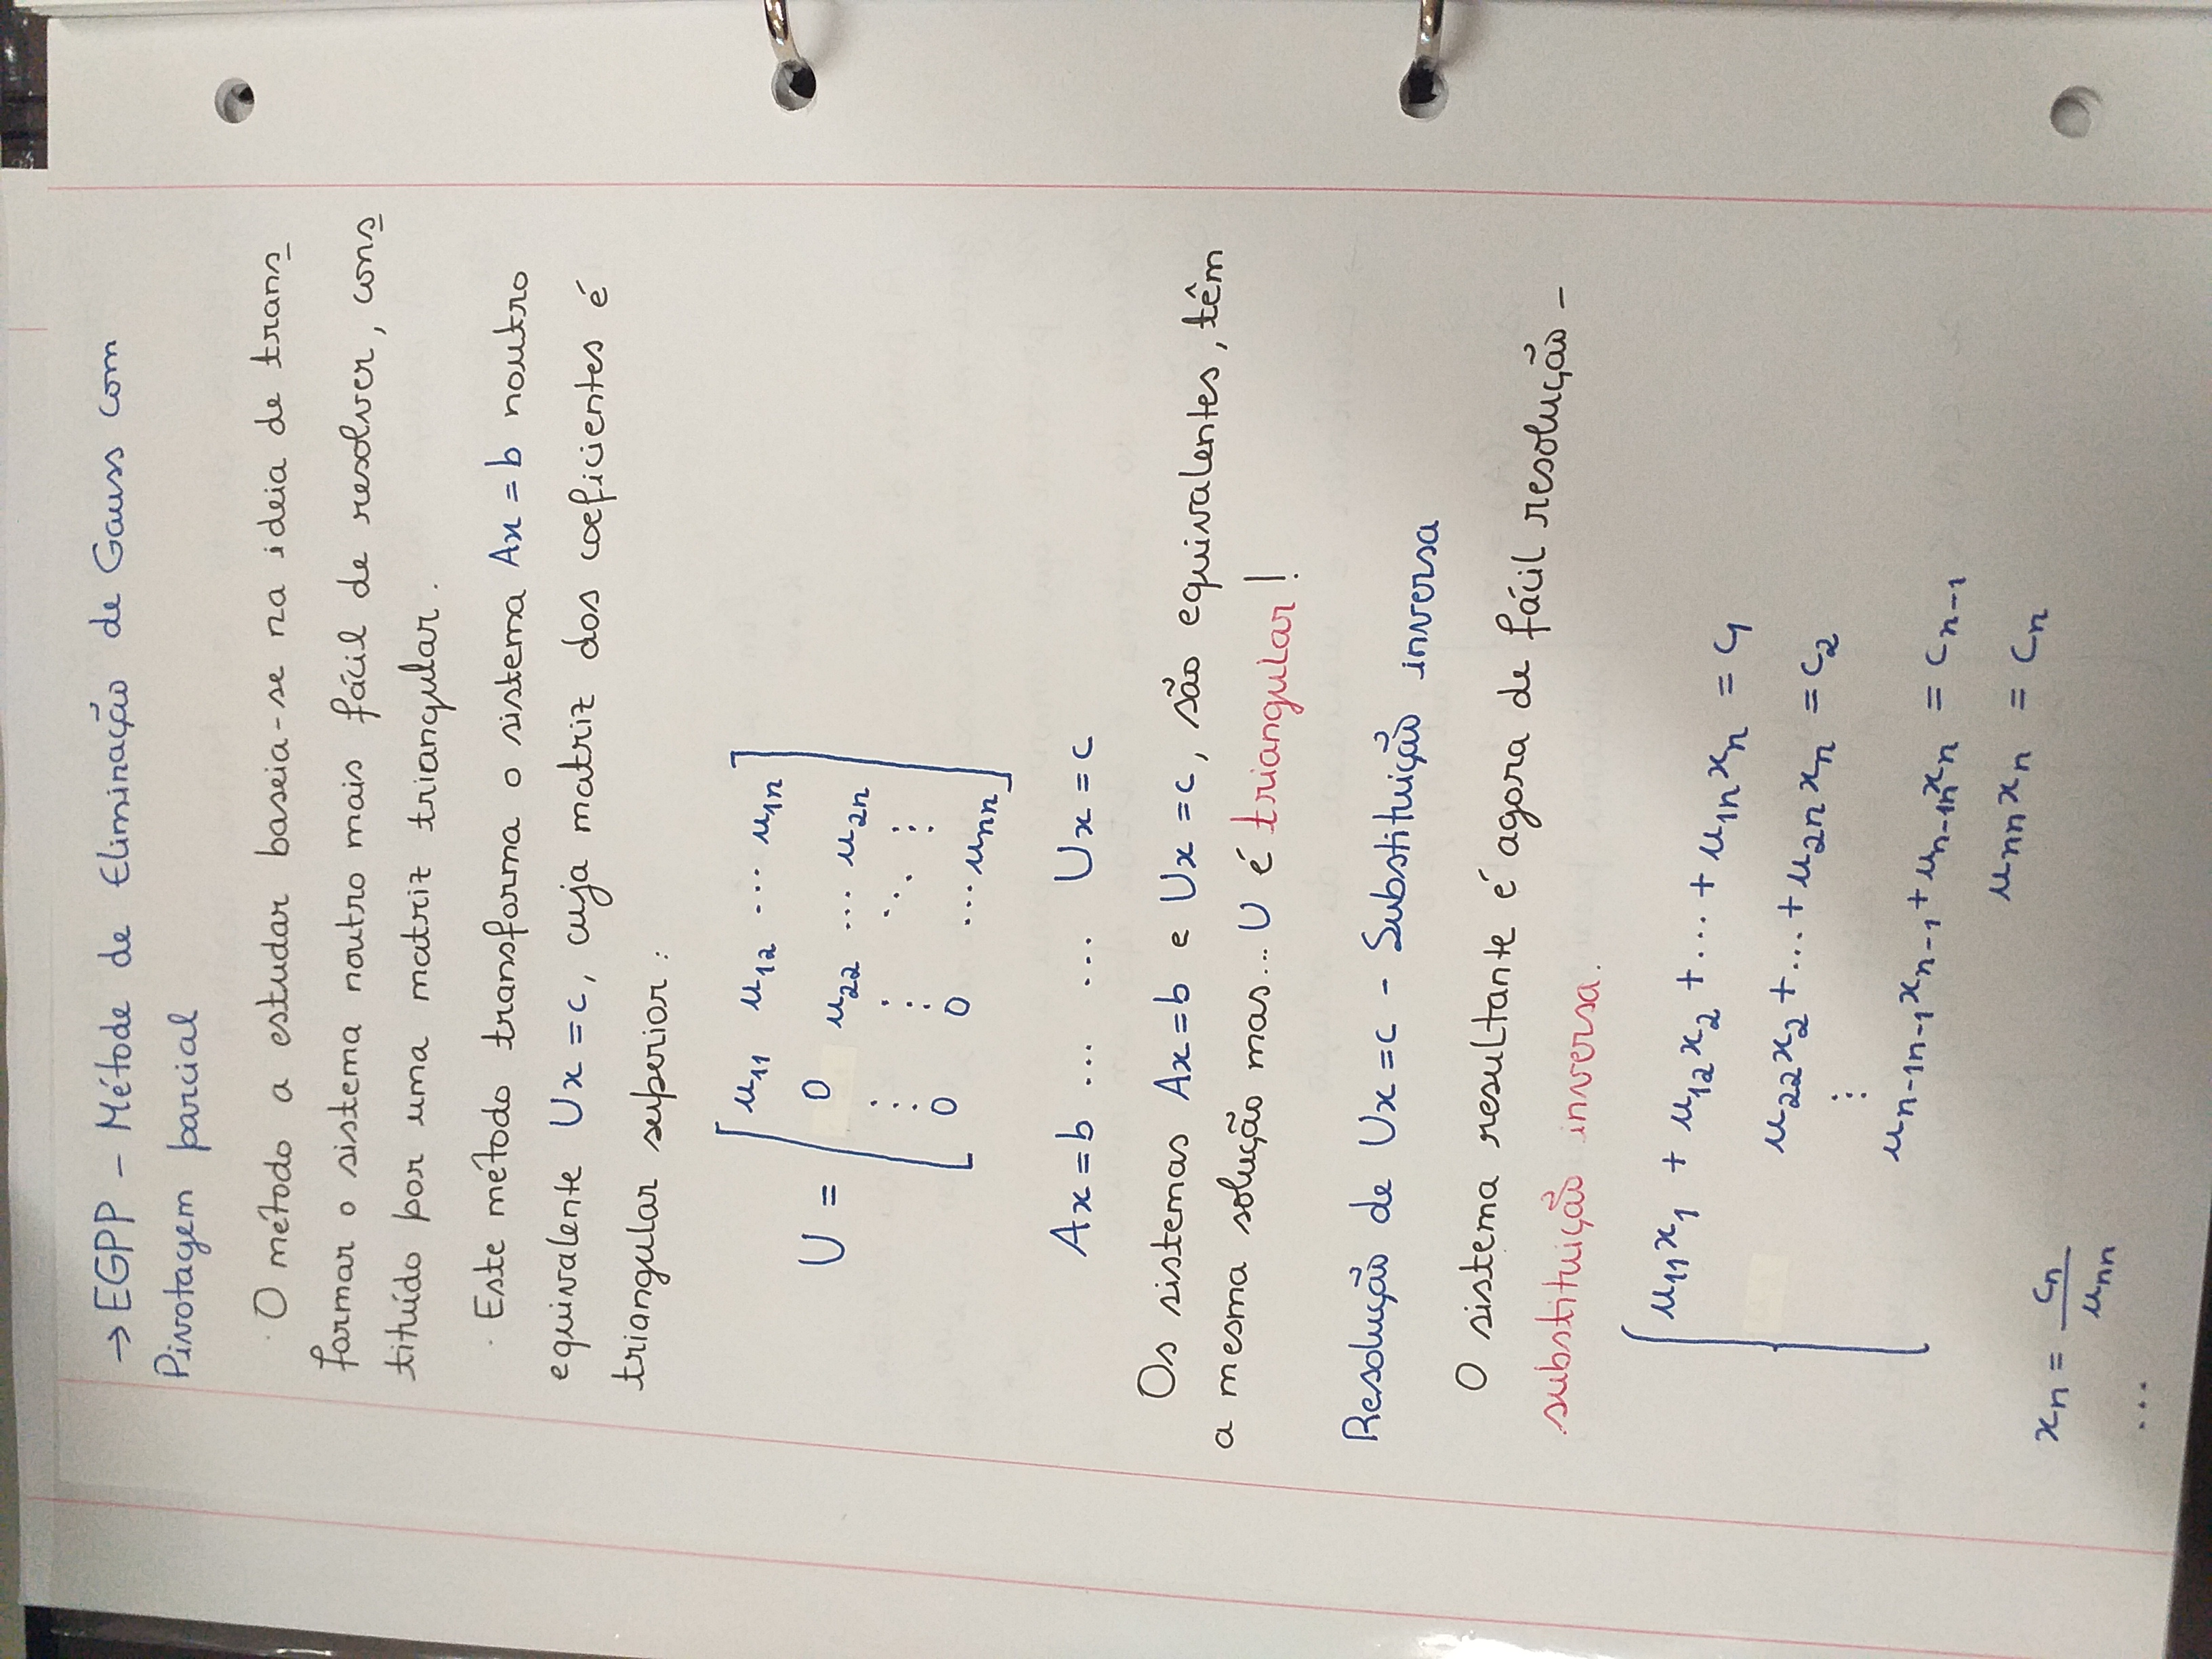 → EGPP - Métode de Eliminação de Gauss com
Pivotagem parcial
· O método a estudar baseia-se na ideia de trans
formar o sistema noutro mais fácil de resolver, cons
tituído por uma matriz triangular.
· Este método transforma o sistema Ax = b noutro
equivalente Ux = c, cuja matriz dos coeficientes é
triangular superior:
U = [ u₁₁ u₁₂ ... u₁ₙ
0 u₂₂ ... u₂ₙ
⋮ ⋮ ⋱ ⋮
0 0 ... uₙₙ ]
Ax = b ... ... Ux = c
Os sistemas Ax = b e Ux = c, são equivalentes, têm
a mesma solução mas... U é triangular!
Resolução de Ux = c - Substituição inversa
O sistema resultante é agora de fácil resolução -
substituição inversa.
{ u₁₁x₁ + u₁₂x₂ + ... + u₁ₙxₙ = c₁
u₂₂x₂ + ... + u₂ₙxₙ = c₂
⋮
uₙ₋₁ₙ₋₁xₙ₋₁ + uₙ₋₁ₙxₙ = cₙ₋₁
uₙₙxₙ = cₙ
xₙ = cₙ / uₙₙ
...